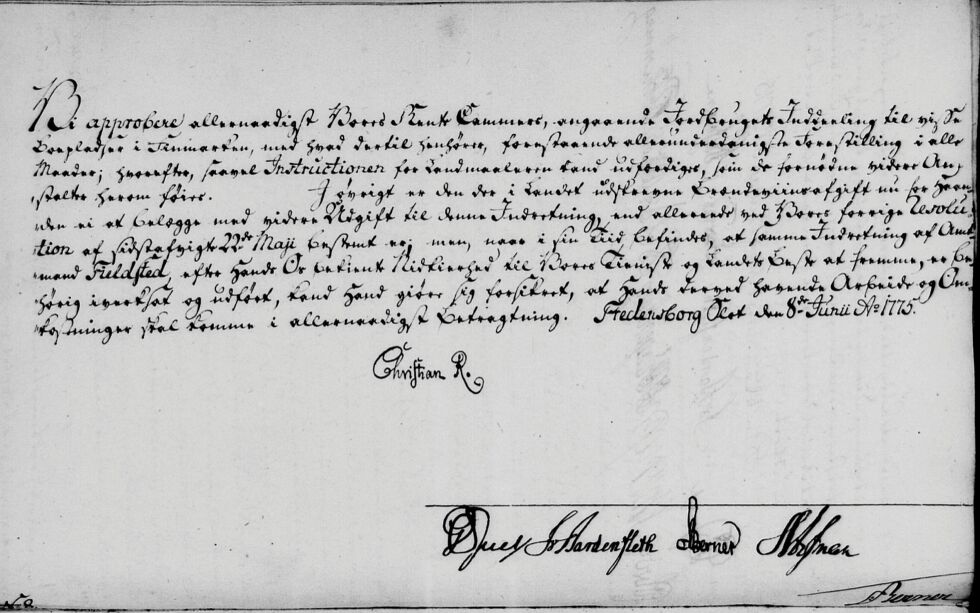 Vi approbere allernaadigst Vores Rente Cammers, angaaende Jordbrugets Inddeeling til visse
Boepladser i Finmarken, med hvad dertil henhører, forestaaende allerunderdanigste Forestilling i alle
Maader; hvorefter, saavel Instructionen for Landmaaleren kand udfærdiges, som de fornødne videre An-
stalter herom føies. I øvrigt er den der i Landet udskrevne Brændeviinsafgift nu for Haan-
den ei at belægge med videre Udgift til denne Indretning, end allerede ved Vores forrige Resolu-
tion af sidstafvigte 22de Maji bestemt er; men, naar i sin Tiid befindes, at samme Indretning af Amt-
mand Fieldsted, efter Hands Os bekiente Nidkierhed til Vores Tieniste og Landets Beste at fremme, er be-
hørig iverksat og udført, kand Hand giøre sig forsikret, at Hands derved havende Arbeide og Om-
kostninger skal komme i allernaadigst Betragtning. Fredensborg Slot den 8de Junii Ao 1775.
Christian R.
JHardenfleth Berner
Berner